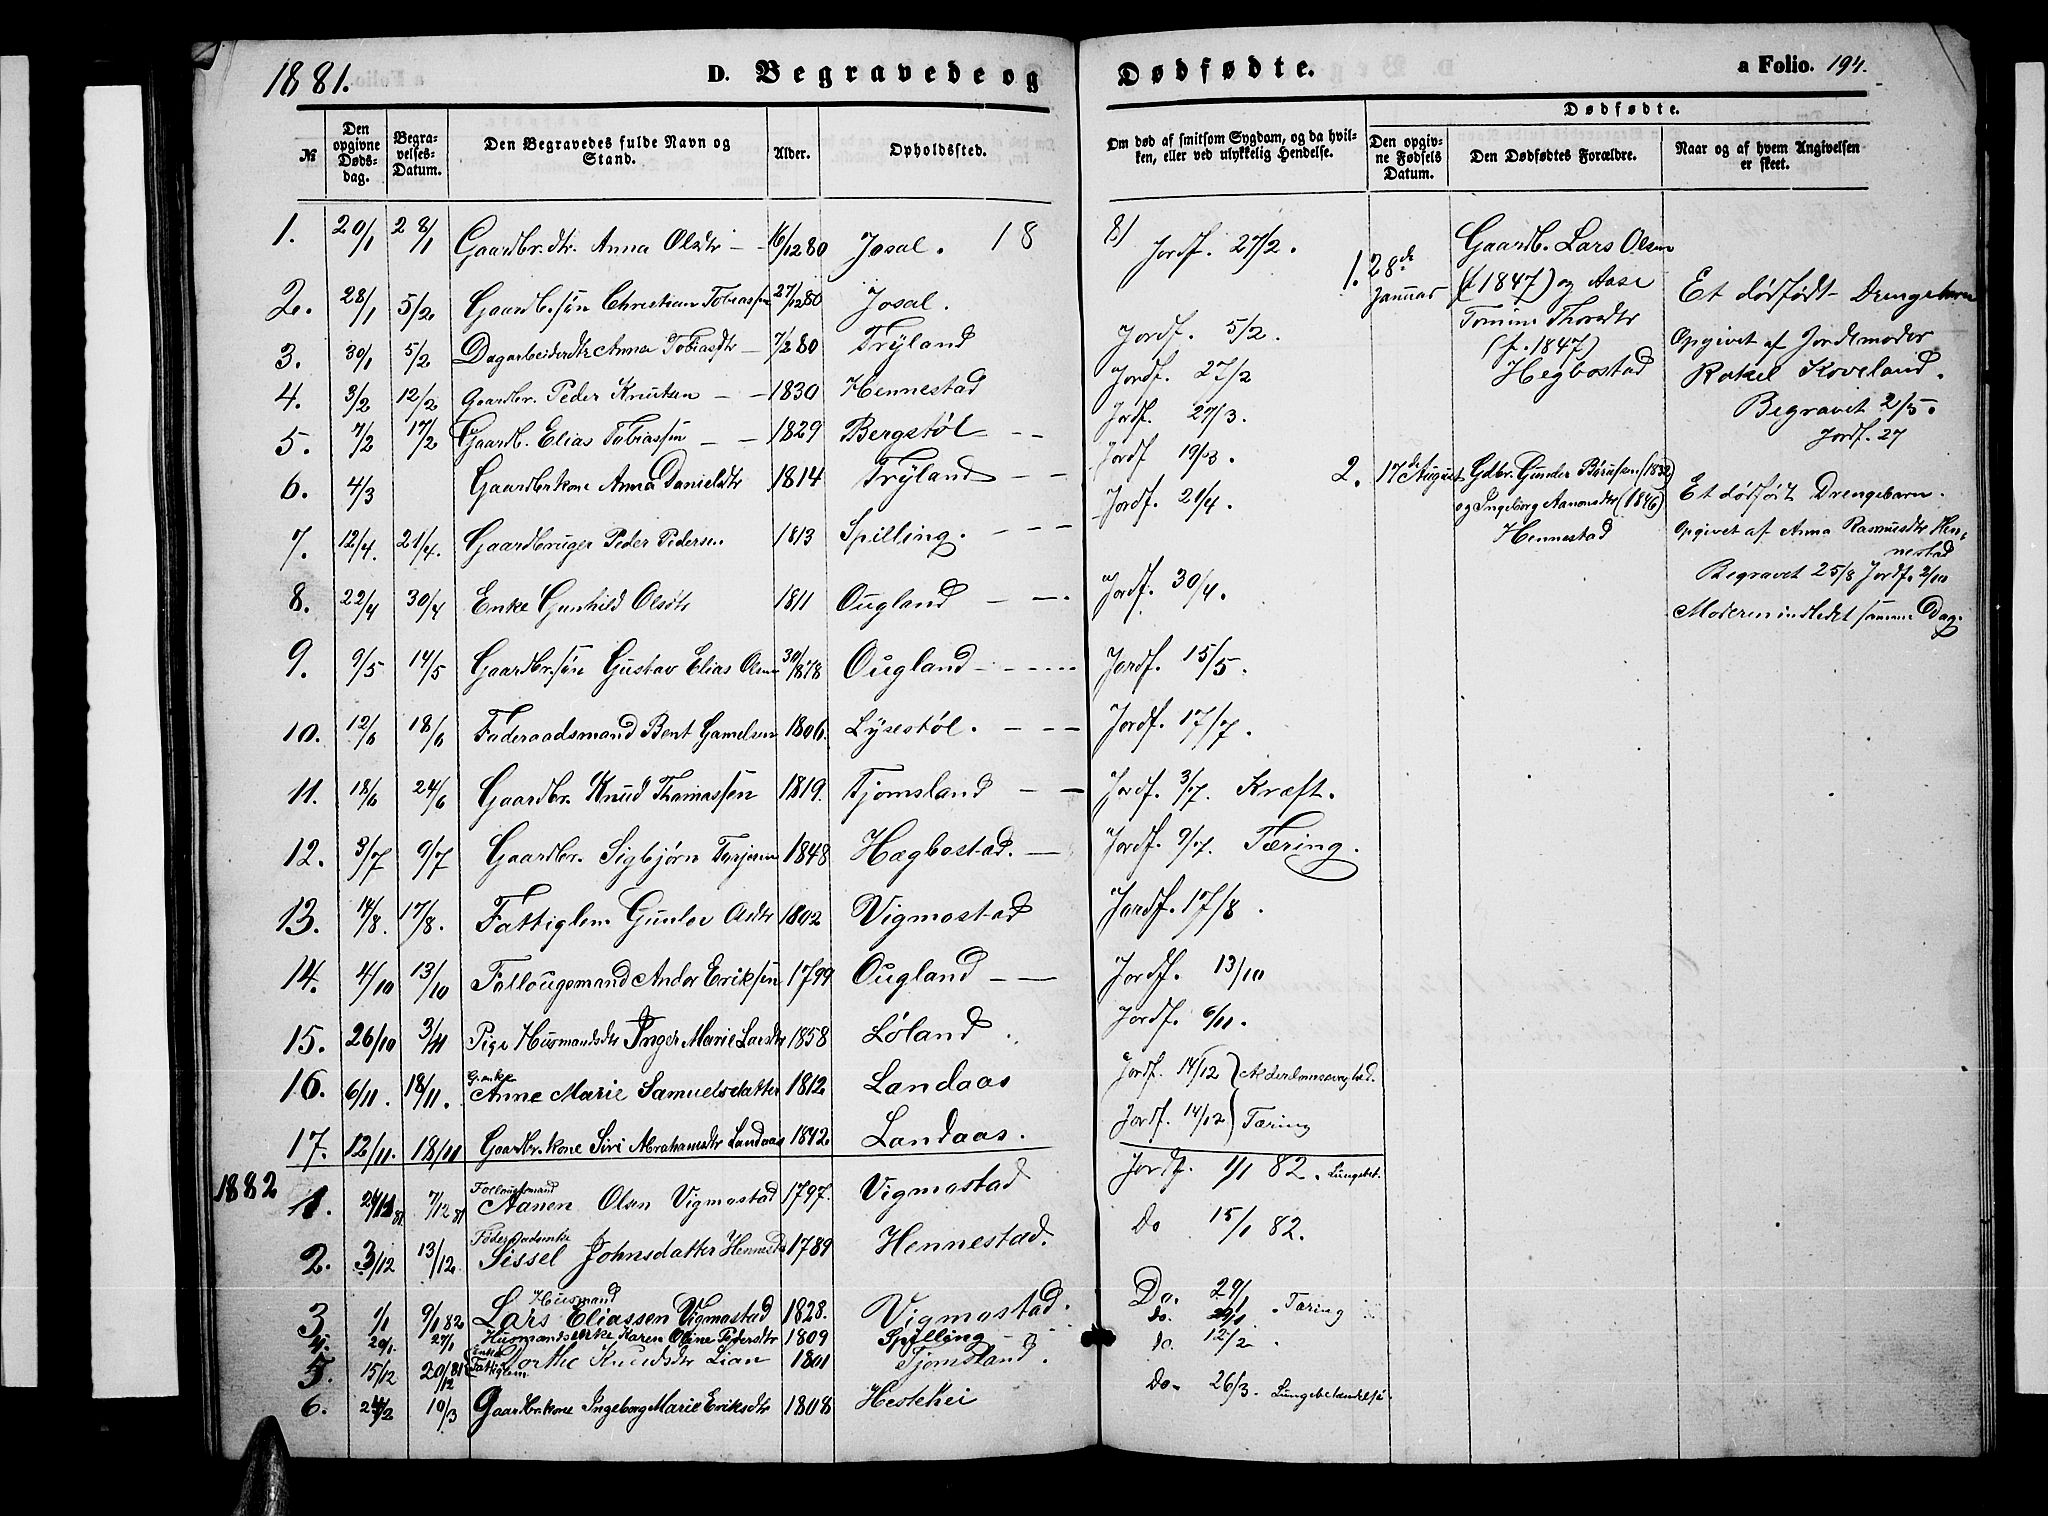 1881.
D. Begravede og Dødfødte.
a Folio. 194.
№
Den opgivne Døds-dag.
Begra-velses-Datum.
Den Begravedes fulde Navn og Stand.
Alder.
Opholdssted.
Om død af smitsom Sygdom, og da hvil-ken, eller ved ulykkelig Hendelse.
Dødfødte.
Den opgiv-ne Fødsels Datum.
Den Dødfødtes Forældre.
Naar og af hvem Angivelsen er skeet.
1. 20/1 28/1 Gaardbr.dtr. Anna Olsdtr - 16/12 80 Josal. 18 81 Jordf. 27/2.
2. 28/1 5/2 Gaardb.søn Christian Tobiassen 27/12 80 Josal. Jordf. 5/2.
3. 30/1 5/2 Dagarbeiderdtr Anna Tobiasdtr - 7/2 80 Tryland Jordf. 27/2
4. 3/2 12/2 Gaardbr. Peder Knutsen - - 1830 Hennestad Jordf. 27/3.
5. 7/2 17/2 Gaardb. Elias Tobiassen - - 1829 Bergstøl - - Jordf 19/3.
6. 4/3 Gaardbrkone Anna Danieldtr 1814 Tryland - - Jordf. 21/4.
7. 12/4. 21/4. Gaardbruger Peder Pedersen 1813 Spilling. - - -
8. 22/4 30/4 Enke Gunhild Olsdtr 1811 Ougland - - - Jordf. 30/4.
9. 9/5 14/5 Gaardbr.søn Gustav Elias Olsen 30/1878 Ougland - - - - Jordf. 15/5.
10. 12/6 18/6 Føderaadsmand Bent Gamelsen 1806. Lysestøl. - - - Jordf. 17/7.
11. 18/6 24/6 Gaardbr. Knud Thomassen 1819. Tjomsland - - Jordf. 3/7. Kræft.
12. 3/7 9/7 Gaardbr. Sigbjørn Terjesen 1848 Hægbostad. - Jordf. 9/7. Tæring.
13. 14/8. 17/8. Fattiglem Gunlov Olsdtr 1802 Vigmostad Jordf. 17/8.
14. 4/10 13/10 Follougsmand Andor Eriksen 1799 Ougland - - Jordf. 13/10
15. 26/10 3/11 Pige Husmandsdtr Inger Marie Larsdtr 1858 Løland Jordf. 6/11.
16. 6/11. 18/11. G. enke Anne Marie Samuelsdatter 1812 Landaas Jordf. 14/12 } Alderdomssvaghed.
17. 12/11. 18/11 Gaardbr.kone Siri Abrahamsdtr Landaas 1842 Landaas. Jordf. 14/12 } Tæring
1882
1. 24/12 81 7/12 81 Follougsmand Aanen Olsen Vigmostad 1797. Vigmostad Jordf. 1/1 82. Lungebet.
2. 3/12 13/12 Føderaadsenke Sissel Johnsdatter Hennestad 1789 Hennestad. Do 15/1 82.
3 1/1 9/1 82 Husmand Lars Eliassen Vigmostad 1828. Vigmostad. Do. 29/1 Tæring
4. 20/1. 27/1 Husmandsenke Karen Oline Pedersdtr 1809 Spilling - - do. 29/1
5. 15/12 20/12 81 Enke Fattiglem. Dorthe Knudsdtr Lian 1801 Tjomsland. do. 12/2
6. 24/2 10/3 Gaardbr.kone Ingeborg Marie Eriksdtr 1808 Hestehei Do. 26/3. Lungebetændelse
1. 28de Januar
Gaardb. Lars Olsen
(f 1847) og Aase
Tomine Thorsdtr
(f. 1847)
Hegbostad
Et dødfødt Drengebarn
Opgivet af Jordemoder
Rakel Koveland.
Begravet 2/5.
Jordf. 27
2. 17de August
Gdbr. Gunder Børufsen (1832)
og Ingeborg Aanonsdtr (1846)
Hennestad
Et dødfødt Drengebarn.
Opgivet af Anna Rasmusdtr Hen-
nestad
Begravet 25/8 Jordf. 2/10
Moderen indledet samme Dag.